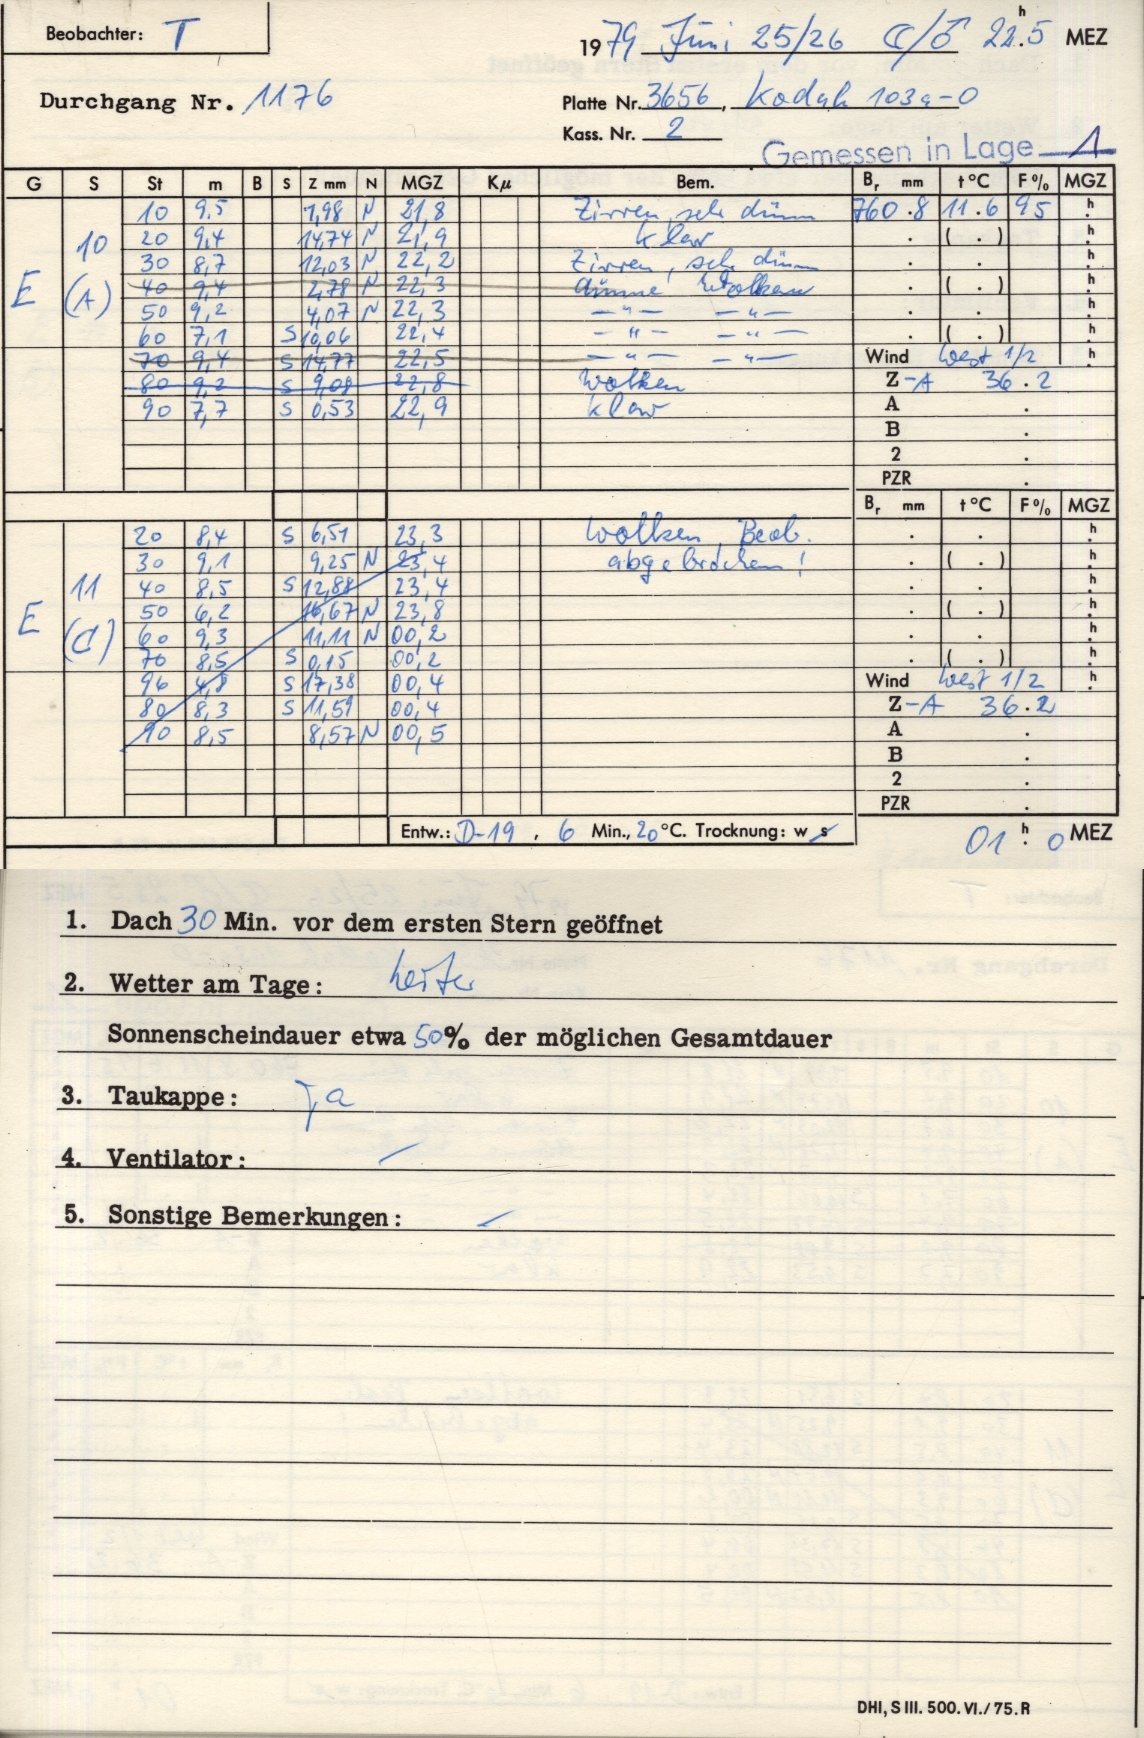 Beobachter: T
1979 Juni 25/26 ☾/♂ 22.h5 MEZ
Durchgang Nr. 1176
Platte Nr. 3656, Kodak 103a-O
Kass. Nr. 2
Gemessen in Lage 1
G S St m B S Z mm N MGZ Kμ Bem. Br mm t °C F % MGZ
E 10 (A)
10 9,5 7,98 N 21,8 Zirren, sehr dünn 760.8 11.6 95 h
20 9,4 14,74 N 21,9 klar . ( . ) h
30 8,7 12,03 N 22,2 Zirren, sehr dünn . . h
40 9,4 2,78 N 22,3 dünne Wolken . ( . ) h
50 9,2 4,07 N 22,3 — " — — " — . . h
60 7,1 S 10,06 22,4 — " — — " — . ( . ) h
70 9,4 S 14,77 22,5 — " — — " — Wind West 1/2 h
80 9,2 S 9,08 22,8 Wolken Z-A 36.2
90 7,7 S 0,53 22,9 klar A .
B .
2 .
PZR .
Br mm t °C F % MGZ
E 11 (C)
20 8,4 S 6,51 23,3 Wolken, Beob. . . h
30 9,1 9,25 N 23,4 abgebrochen! . ( . ) h
40 8,5 S 12,88 23,4 . . h
50 6,2 16,67 N 23,8 . ( . ) h
60 9,3 11,11 N 00,2 . . h
70 8,5 S 0,15 00,2 . ( . ) h
96 4,8 S 17,38 00,4 Wind West 1/2 h
80 8,3 S 11,59 00,4 Z-A 36.2
90 8,5 8,57 N 00,5 A .
B .
2 .
PZR .
Entw.: D-19, 6 Min., 20 °C. Trocknung: w s
01.h0 MEZ
1. Dach 30 Min. vor dem ersten Stern geöffnet
2. Wetter am Tage: heiter
Sonnenscheindauer etwa 50% der möglichen Gesamtdauer
3. Taukappe: ja
4. Ventilator: —
5. Sonstige Bemerkungen: —
DHI, S III. 500. VI./75. R